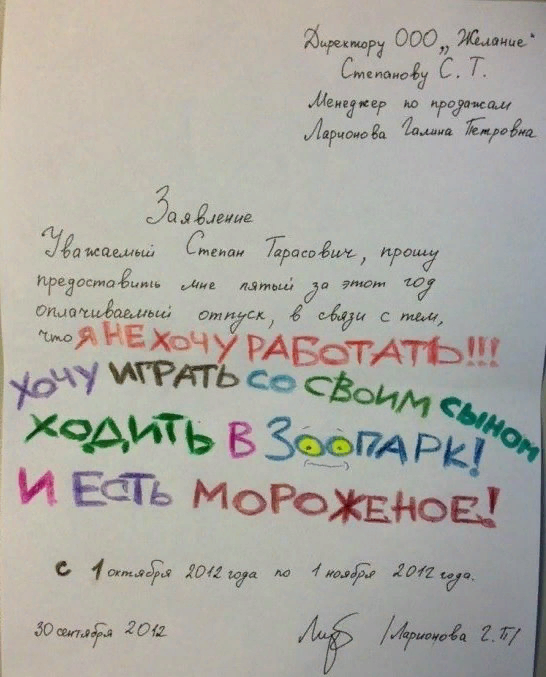 Директору ООО „Желание"
Степанову С. Т.
Менеджер по продажам
Ларионова Галина Петровна
Заявление
Уважаемый Степан Тарасович, прошу
предоставить мне пятый за этот год
оплачиваемый отпуск, в связи с тем,
что Я НЕ ХОЧУ РАБОТАТЬ!!!
ХОЧУ ИГРАТЬ СО СВОИМ СЫНОМ
ХОДИТЬ В ЗООПАРК!
И ЕСТЬ МОРОЖЕНОЕ!
с 1 октября 2012 года по 1 ноября 2012 года.
30 сентября 2012 /Ларионова Г.П/